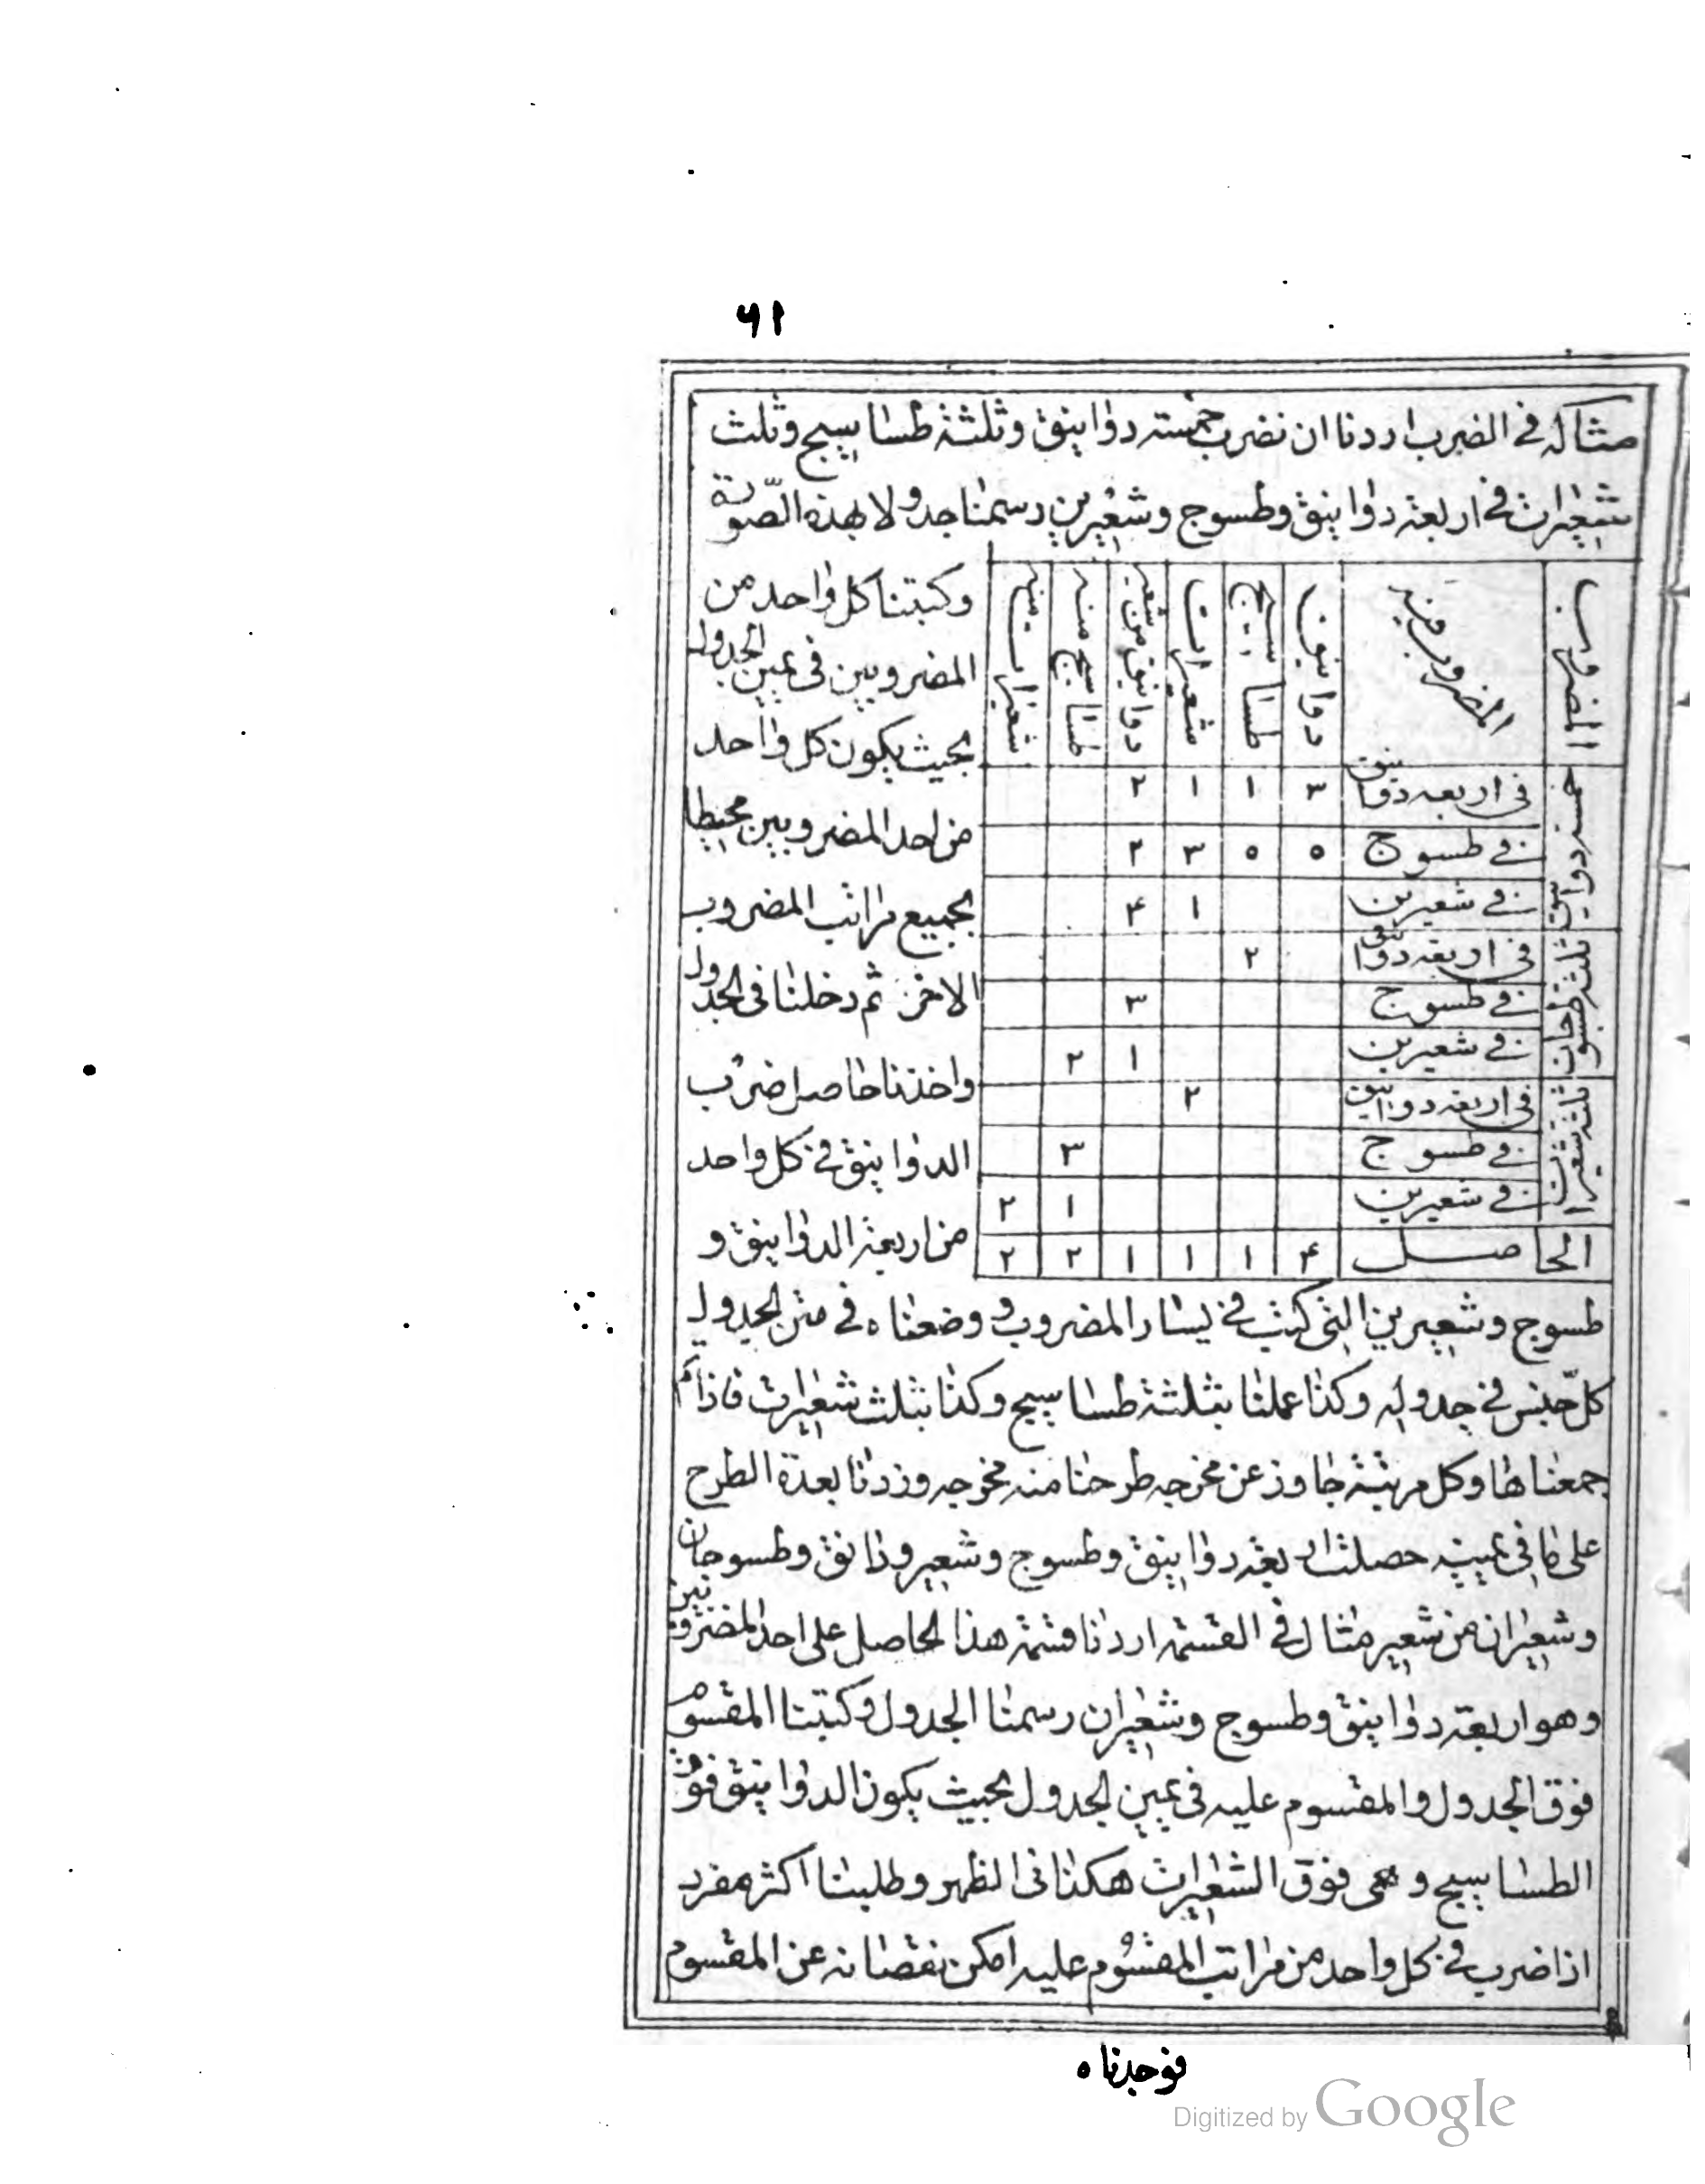 ٦١
مثاله فی الضرب اردنا ان نضرب خمسته دوانیق وثلثة طساسیج وثلث
شعیرات فی اربعة دوانیق وطسوج وشعیرین رسمنا جدولا بهذه الصّورة
المضروب المضروب فیه دوانیق طساسیج شعیرات دوانیق من شعیر طساسیج منه شعیرات منه
خمسته دوانیق فی اربعه دوانیق ٣ ١ ١ ٢
فی طسوج ٥ ٥ ٣ ٢
فی شعیرین ١ ٤
ثلثة طسوجات فی اربعه دوانیق ٢
فی طسوج ٣
فی شعیرین ١ ٢
ثلثة شعیرات فی اربعه دوانیق ٢
فی طسوج ٣
فی شعیرین ١ ٢
الحاصل ۴ ١ ١ ١ ٢ ٢
وکتبنا کل واحد من
المضروبین فی یمین الجدول
بحیث یکون کل واحد
من احد المضروبین محیطا
بجمیع مراتب المضروب
الاخر ثم دخلنا فی الجدول
واخذنا حاصل ضرب
الدوانیق فی کل واحد
من اربعة الدوانیق و
طسوج وشعیرین التی کتبت فی یسار المضروب و وضعناه فی متن الجدول
کلّ جنس فی جدوله وکذا عملنا بثلثة طساسیج وکذا بثلث شعیرات فاذا تم
جمعناها وکل مرتبة جاوز عن مخرجه طرحنا منه مخرجه وزدنا بعدة الطرح
علی ما فی یمینه حصلت اربعة دوانیق وطسوج وشعیر ودانق وطسوجان
وشعیران من شعیر مثاله فی القسمة اردنا قسمة هذا الحاصل علی احد المضروبین
وهو اربعة دوانیق وطسوج وشعیران رسمنا الجدول وکتبنا المقسوم
فوق الجدول والمقسوم علیه فی یمین الجدول بحیث یکون الدوانیق فوق
الطساسیج وهی فوق الشعیرات هکذا فی الظهر وطلبنا اکثر مفرد
اذا ضرب فی کل واحد من مراتب المقسوم علیه امکن نقصانه عن المقسوم
فوجدناه
Digitized by Google